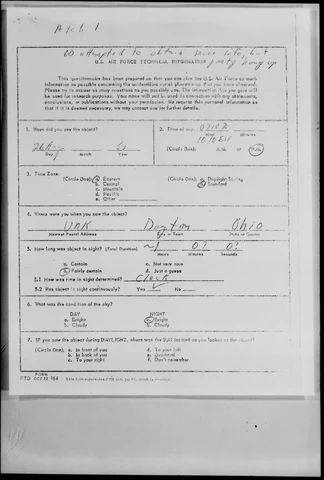 Atch 1
OD attempted to obtain more info, but
U. S. AIR FORCE TECHNICAL INFORMATION party hung up
This questionnaire has been prepared so that you can give the U. S. Air Force as much
information as possible concerning the unidentified aerial phenomenon that you have observed.
Please try to answer as many questions as you possibly can. The information that you give will
be used for research purposes. Your name will not be used in connection with any statements,
conclusions, or publications without your permission. We request this personal information so
that if it is deemed necessary, we may contact you for further details.
1. When did you see the object?
26 Aug
Day Month Year
2. Time of day:
Hour Minutes
(Circle One): A.M. or P.M.
3. Time Zone:
(Circle One): a. Eastern
b. Central
c. Mountain
d. Pacific
e. Other
(Circle One): a. Daylight Saving
b. Standard
4. Where were you when you saw the object?
Unk Dayton Ohio
Nearest Postal Address City or Town State or County
5. How long was object in sight? (Total Duration)
Hours Minutes Seconds
a. Certain c. Not very sure
b. Fairly certain d. Just a guess
5.1 How was time in sight determined? Clock
5.2 Was object in sight continuously? Yes ✓ No
6. What was the condition of the sky?
DAY NIGHT
a. Bright a. Bright
b. Cloudy b. Cloudy
7. IF you saw the object during DAYLIGHT, where was the SUN located as you looked at the object?
(Circle One): a. In front of you d. To your left
b. In back of you e. Overhead
c. To your right f. Don't remember
FORM
FTD OCT 62 164